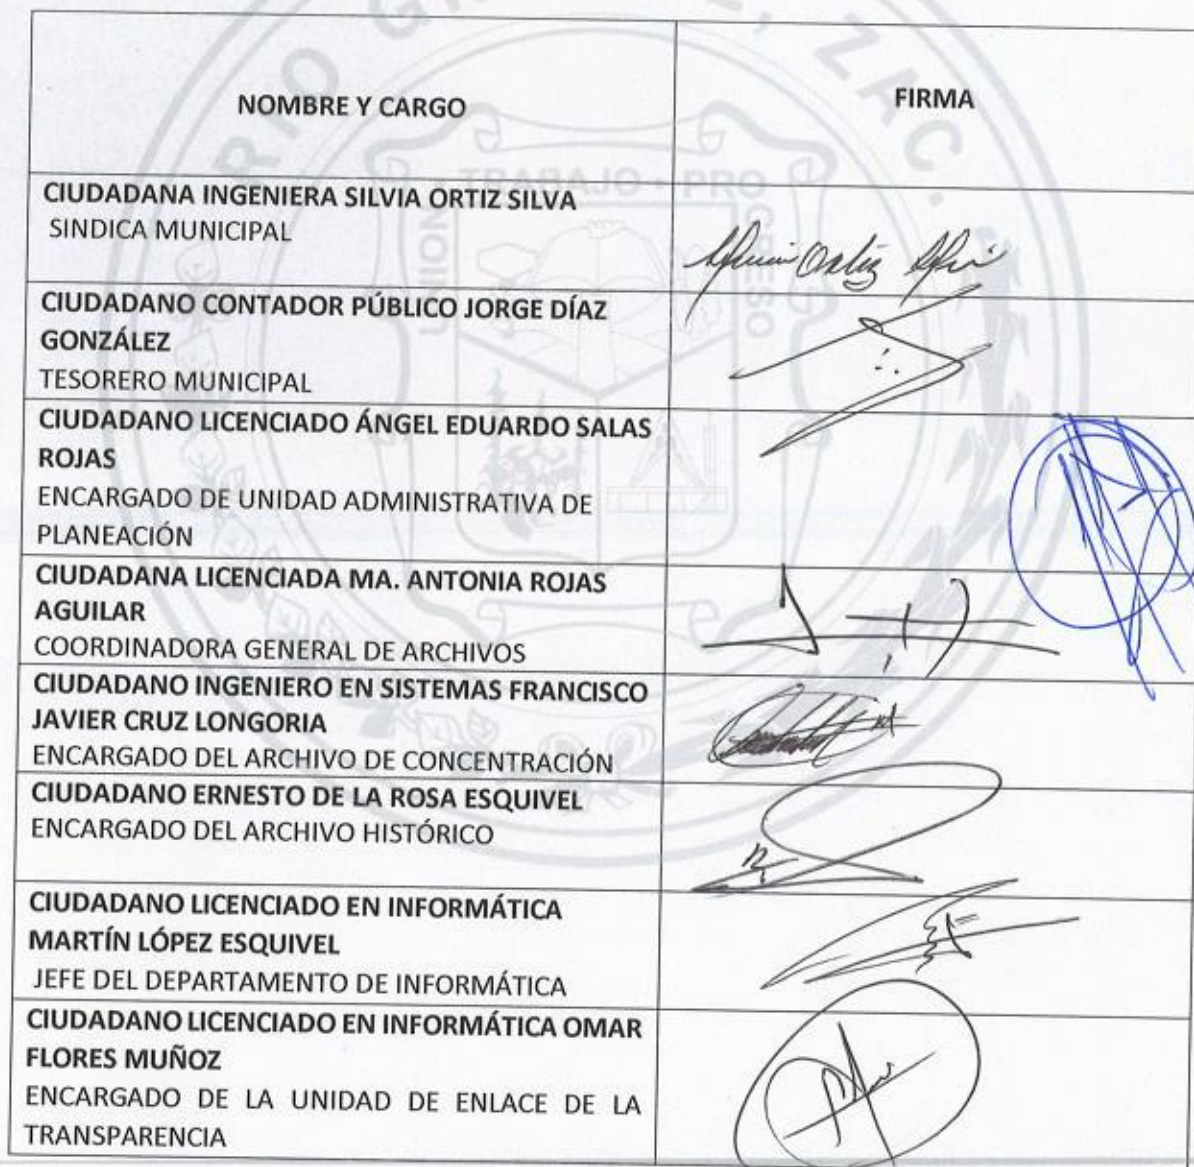 RIO GRANDE, ZAC.
UNION - TRABAJO - PROGRESO
NOMBRE Y CARGO
FIRMA
CIUDADANA INGENIERA SILVIA ORTIZ SILVA
SINDICA MUNICIPAL
CIUDADANO CONTADOR PÚBLICO JORGE DÍAZ
GONZÁLEZ
TESORERO MUNICIPAL
CIUDADANO LICENCIADO ÁNGEL EDUARDO SALAS
ROJAS
ENCARGADO DE UNIDAD ADMINISTRATIVA DE
PLANEACIÓN
CIUDADANA LICENCIADA MA. ANTONIA ROJAS
AGUILAR
COORDINADORA GENERAL DE ARCHIVOS
CIUDADANO INGENIERO EN SISTEMAS FRANCISCO
JAVIER CRUZ LONGORIA
ENCARGADO DEL ARCHIVO DE CONCENTRACIÓN
CIUDADANO ERNESTO DE LA ROSA ESQUIVEL
ENCARGADO DEL ARCHIVO HISTÓRICO
CIUDADANO LICENCIADO EN INFORMÁTICA
MARTÍN LÓPEZ ESQUIVEL
JEFE DEL DEPARTAMENTO DE INFORMÁTICA
CIUDADANO LICENCIADO EN INFORMÁTICA OMAR
FLORES MUÑOZ
ENCARGADO DE LA UNIDAD DE ENLACE DE LA
TRANSPARENCIA